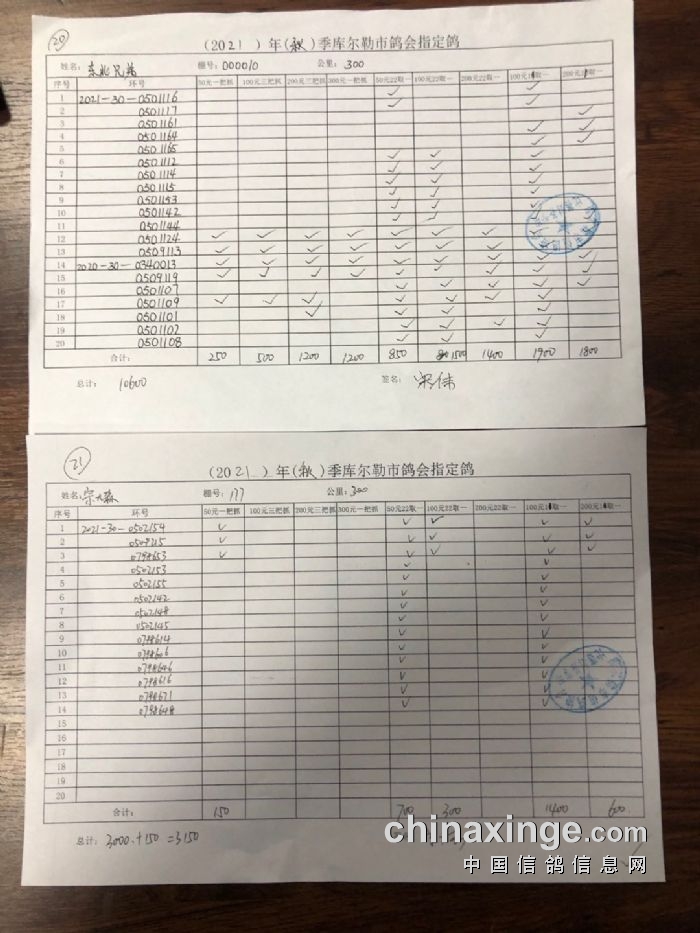 20
(2021)年(秋)季库尔勒市鸽会指定鸽
姓名: 东北兄弟 棚号: 000010 公里: 300
序号 环号 50元一把抓 100元三把抓 200元三把抓 300元一把抓 50元22取一 100元22取一 200元22取一 100元1取一 200元1取一
1 2021-30-0501116 ✓ ✓
2 0501117 ✓ ✓
3 0501161 ✓
4 0501164 ✓ ✓
5 0501165 ✓ ✓
6 0501112 ✓ ✓ ✓
7 0501114 ✓ ✓ ✓
8 0501115 ✓ ✓ ✓
9 0501153 ✓ ✓ ✓
10 0501142 ✓ ✓ ✓
11 0501144
12 0501124 ✓ ✓ ✓ ✓ ✓ ✓ ✓
13 0509113 ✓ ✓ ✓ ✓ ✓ ✓ ✓
14 2020-30-0340013 ✓ ✓ ✓ ✓ ✓ ✓ ✓ ✓ ✓
15 0509119 ✓ ✓ ✓ ✓ ✓ ✓ ✓ ✓ ✓
16 0501107
17 0501109 ✓ ✓ ✓
18 0501101 ✓
19 0501102
20 0501108
合计: 250 500 1200 1200 850 1500 1400 1900 1800
总计: 10600 签名:
21
(2021)年(秋)季库尔勒市鸽会指定鸽
姓名: 棚号: 177 公里: 300
序号 环号 50元一把抓 100元三把抓 200元三把抓 300元一把抓 50元22取一 100元22取一 200元22取一 100元1取一 200元1取一
1 2021-30-0502154 ✓ ✓ ✓ ✓ ✓
2 ✓ ✓ ✓ ✓ ✓
3 0798653 ✓ ✓ ✓ ✓ ✓
4 0502153 ✓ ✓
5 0502155 ✓ ✓
6 0502142 ✓ ✓
7 0502148 ✓ ✓
8 0502145 ✓ ✓
9 0798614 ✓ ✓
10 ✓ ✓
11 0798646 ✓ ✓
12 0798616 ✓ ✓
13 0798671 ✓ ✓
14 0798648 ✓ ✓
15
16
17
18
19
20
合计: 150 700 300 1400 600
总计: 3000+150=3150
chinaxinge.com
中国信鸽信息网